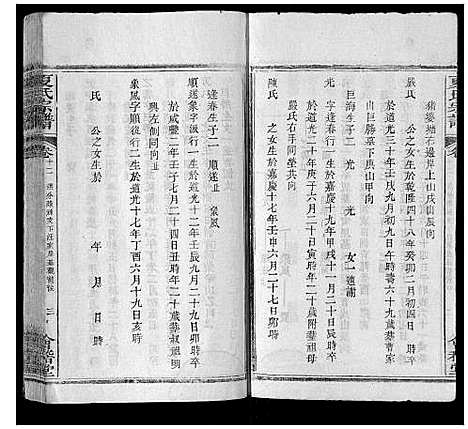 豬婆坳右邊岸上山戌山辰向
嚴氏 公之女生於乾隆四十八年癸卯二月初四日
於道光二十年壬戌九月初九日午時壽六十九歲葬曹家
山巨勝墓下巳山甲向
巨海生子一 光 女一適謝
光 字逢春行一生於嘉慶十九年甲戌十一月二十二日
於道光二十年庚子六月二十日寅時卒年二十歲附葬祖母
嚴氏右手同塋共向
陳氏 公之女生於嘉慶十七年壬申六月二十七日卯時
逢春生子二 順遂 象風
順遂象字派行一生於道光十二年壬辰九月二十一日寅時卒
於咸豐二年壬子七月二十四日丑時年二十歲葬叔祖明
興左側同向
象風字順從行二生於道光十七年丁酉六月十九日亥時
氏 公之女生於 年 月 日 時
夏氏宗譜
卷廿二
合譜堂